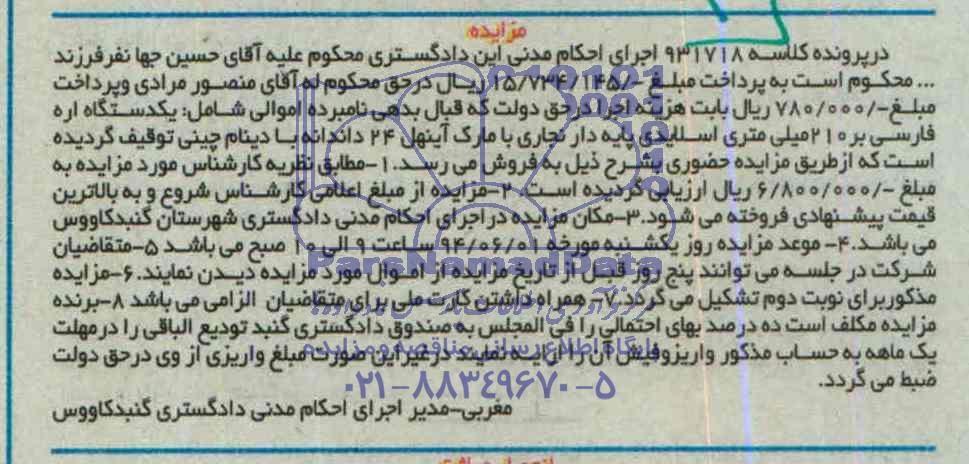 مزایده
درپرونده کلاسه ۹۳۱۷۱۸ اجرای احکام مدنی این دادگستری محکوم علیه آقای حسین جها نفرفرزند
... محکوم است به پرداخت مبلغ -/۱۵/۷۳۴/۱۴۵ ریال درحق محکوم له آقای منصور مرادی وپرداخت
مبلغ-/۷۸۰/۰۰۰ ریال بابت هزینه اجرا درحق دولت که قبال بدهی نامبرده اموالی شامل: یکدستگاه اره
فارسی بر ۲۱۰میلی متری اسلایدی پایه دار نجاری با مارک آینهل ۲۴ داندانه با دینام چینی توقیف گردیده
است که ازطریق مزایده حضوری بشرح ذیل به فروش می رسد. ۱-مطابق نظریه کارشناس مورد مزایده به
مبلغ -/۶/۸۰۰/۰۰۰ ریال ارزیابی گردیده است. ۲-مزایده از مبلغ اعلامی کارشناس شروع و به بالاترین
قیمت پیشنهادی فروخته می شود.۳-مکان مزایده در اجرای احکام مدنی دادگستری شهرستان گنبدکاووس
می باشد.۴- موعد مزایده روز یکشنبه مورخه ۹۴/۰۶/۰۱ ساعت ۹ الی ۱۰ صبح می باشد ۵-متقاضیان
شرکت در جلسه می توانند پنج روز قبل از تاریخ مزایده از اموال مورد مزایده دیدن نمایند.۶-مزایده
مذکوربرای نوبت دوم تشکیل می گردد.۷- همراه داشتن کارت ملی برای متقاضیان الزامی می باشد ۸-برنده
مزایده مکلف است ده درصد بهای احتمالی را فی المجلس به صندوق دادگستری گنبد تودیع الباقی را درمهلت
یک ماهه به حساب مذکور واریزوفیش آن را ارایه نمایند درغیراین صورت مبلغ واریزی از وی درحق دولت
ضبط می گردد.
مغربی-مدیر اجرای احکام مدنی دادگستری گنبدکاووس
ParsNamadData
پایگاه اطلاع رسانی مناقصه و مزایده
۰۲۱-۸۸۳۴۹۶۷۰-۵